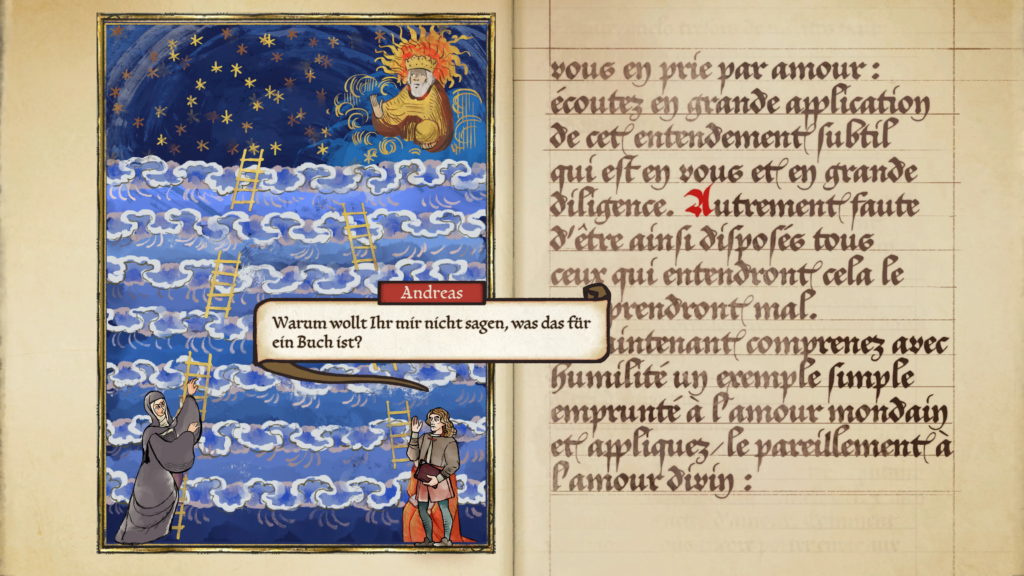 Andreas
Warum wollt Ihr mir nicht sagen, was das für
ein Buch ist?
vous en prie par amour :
écoutez en grande application
de cet entendement subtil
qui est en vous et en grande
diligence. Autrement faute
d'être ainsi disposés tous
ceux qui entendront cela le
prendront mal.
intenant comprenez avec
humilité un exemple simple
emprunté à l'amour mondain
et appliquez-le pareillement à
l'amour divin :